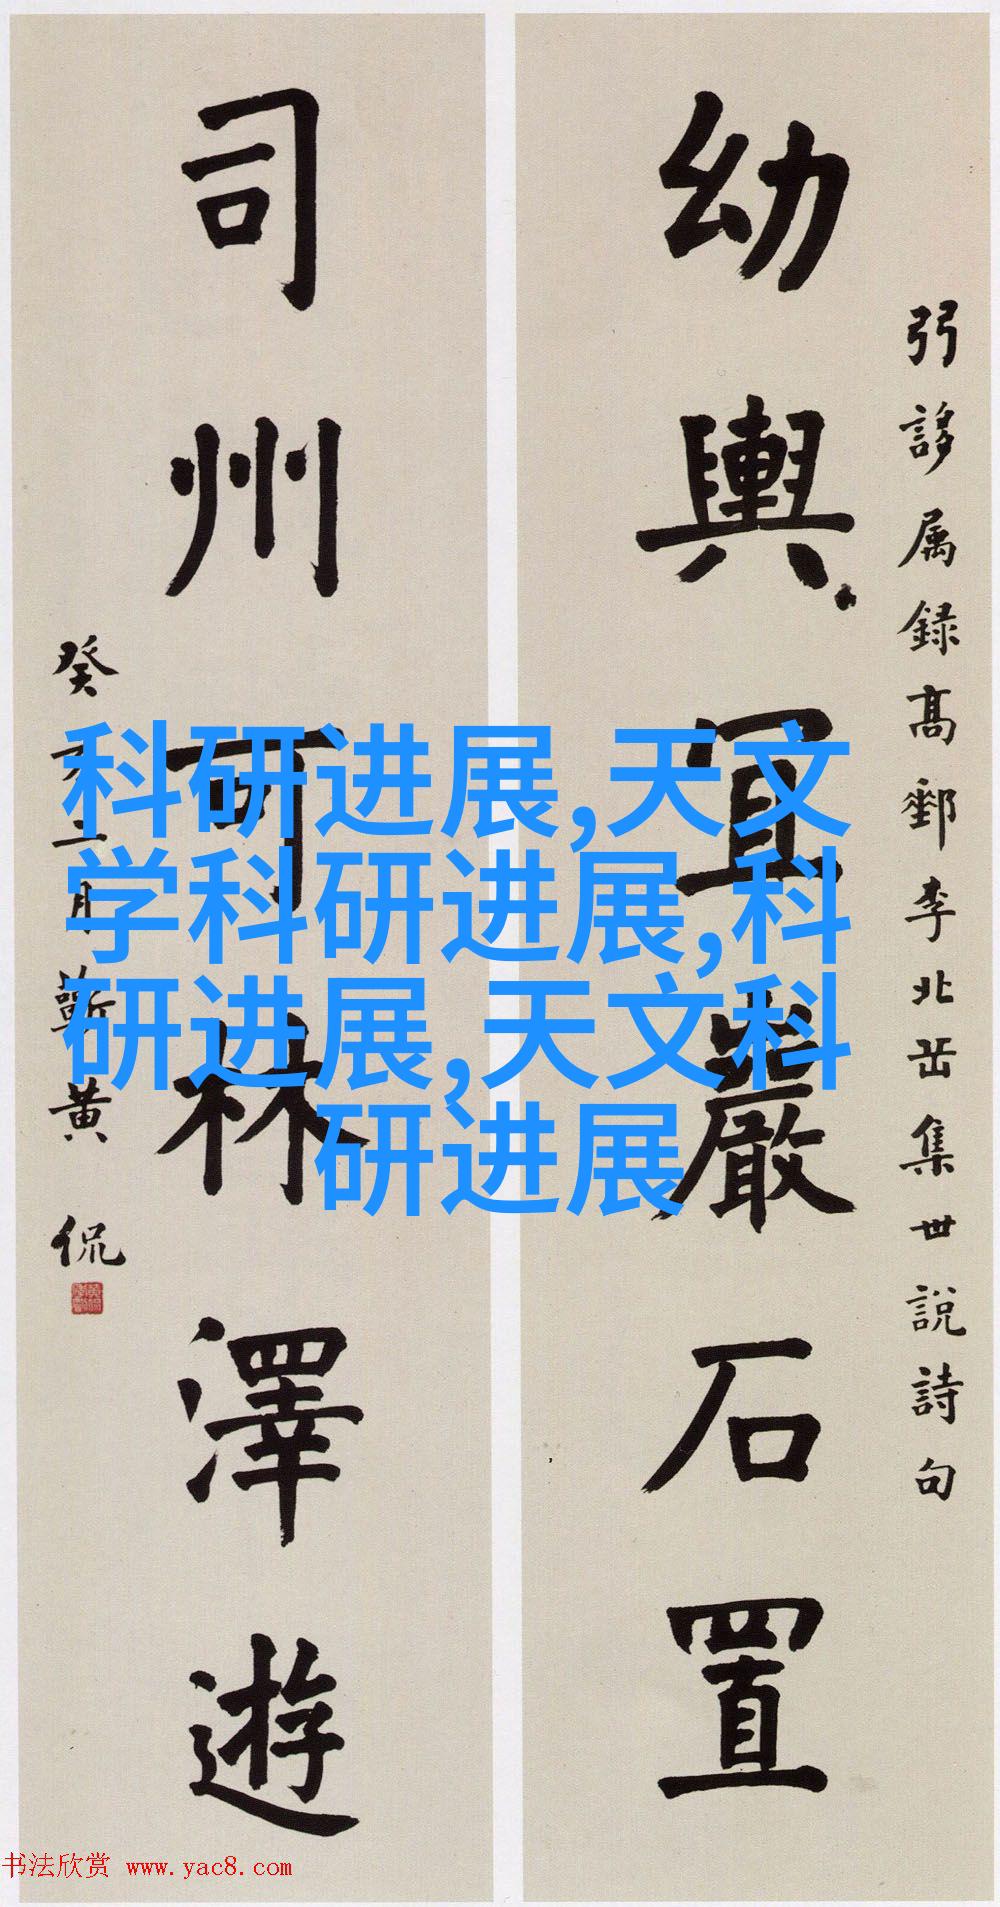 弜誃属録高郵李北岳集世說詩句
幼輿宜巖石置
司州可林澤遊
癸亥二月蘄黄侃
科研进展,天文
学科研进展,科
研进展,天文科
研进展
书法欣赏 www.yac8.com